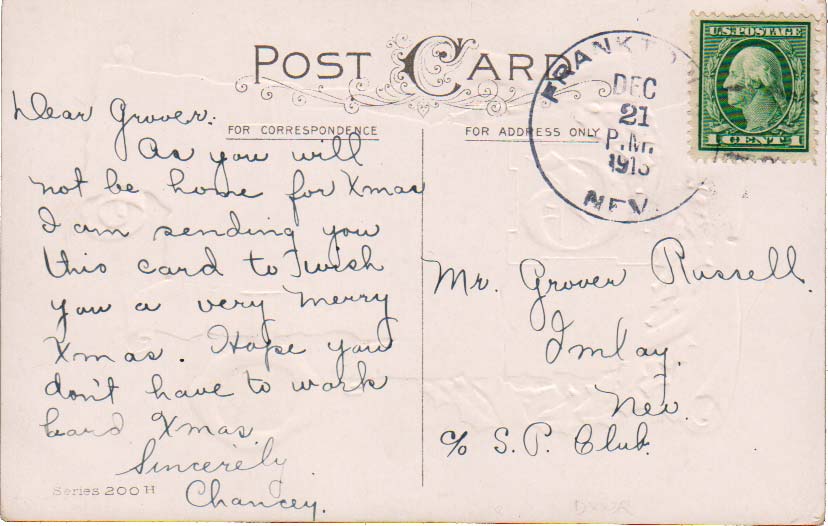 POST CARD
FOR CORRESPONDENCE
FOR ADDRESS ONLY
Dear Grover:
As you will
not be home for Xmas
I am sending you
this card to wish
you a very merry
Xmas. Hope you
don't have to work
hard Xmas.
Sincerely
Chancey.
Series 200 H
DEC
21
P.M.
NEV.
U.S. POSTAGE
1 CENT 1
Mr. Grover Russell.
Imlay.
Nev.
c/o S.P. Club.